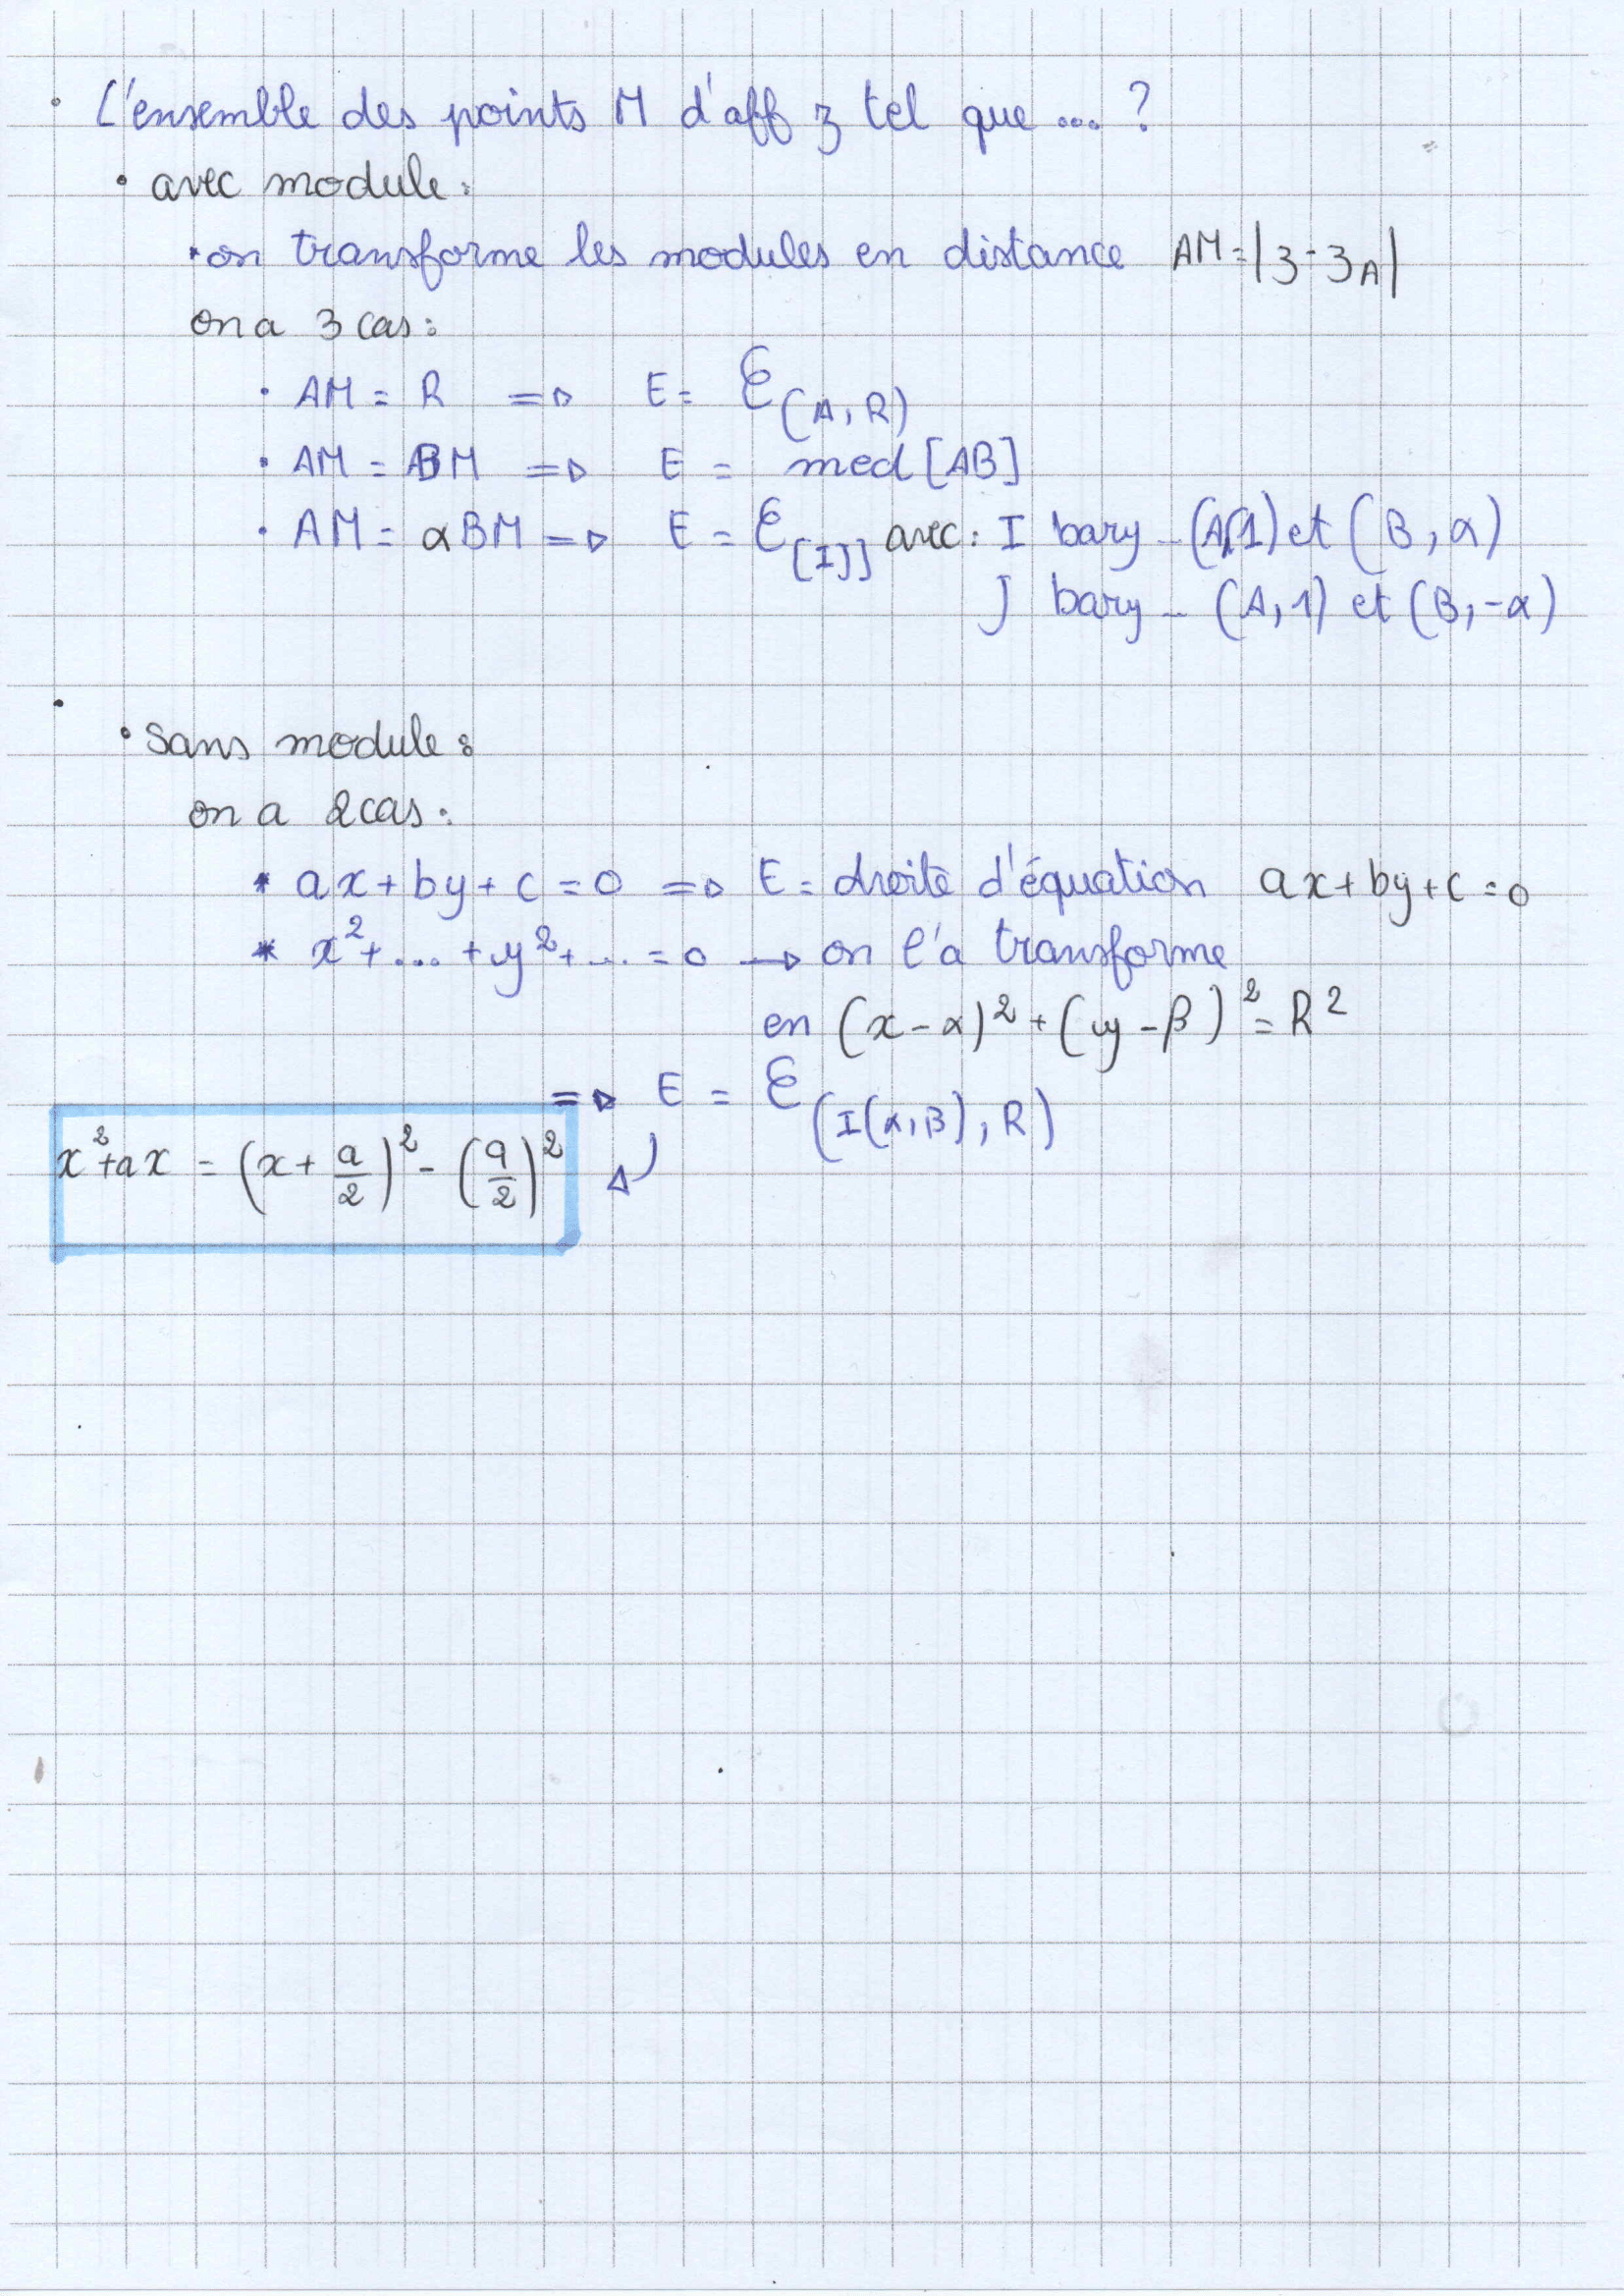 • L'ensemble des points M d'aff z tel que ... ?
• avec module :
• on transforme les modules en distance AM = |z - z_A|
on a 3 cas :
• AM = R => E = C(A, R)
• AM = BM => E = med [AB]
• AM = αBM => E = C[IJ] avec : I bary - (A, 1) et (B, α)
J bary - (A, 1) et (B, -α)
• sans module :
on a 2 cas :
* ax + by + c = 0 => E = droite d'équation ax + by + c = 0
* x² + ... + y² + ... = 0 → on l'a transforme
en (x - α)² + (y - β)² = R²
=> E = C(I(α, β), R)
x² + ax = (x + a/2)² - (a/2)²